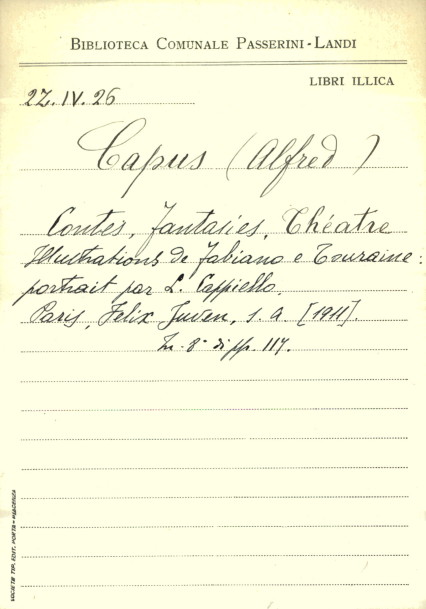 BIBLIOTECA COMUNALE PASSERINI-LANDI
LIBRI ILLICA
22.IV.26
Capus (Alfred)
Contes, Fantasies, Théatre
Illustrations de Fabiano e Touraine:
portrait par L. Cappiello.
Paris, Felix Juven, s.a. [1911].
In-8° di pp. 117.
SOCIETÀ TIP. EDIT. PORTA - PIACENZA